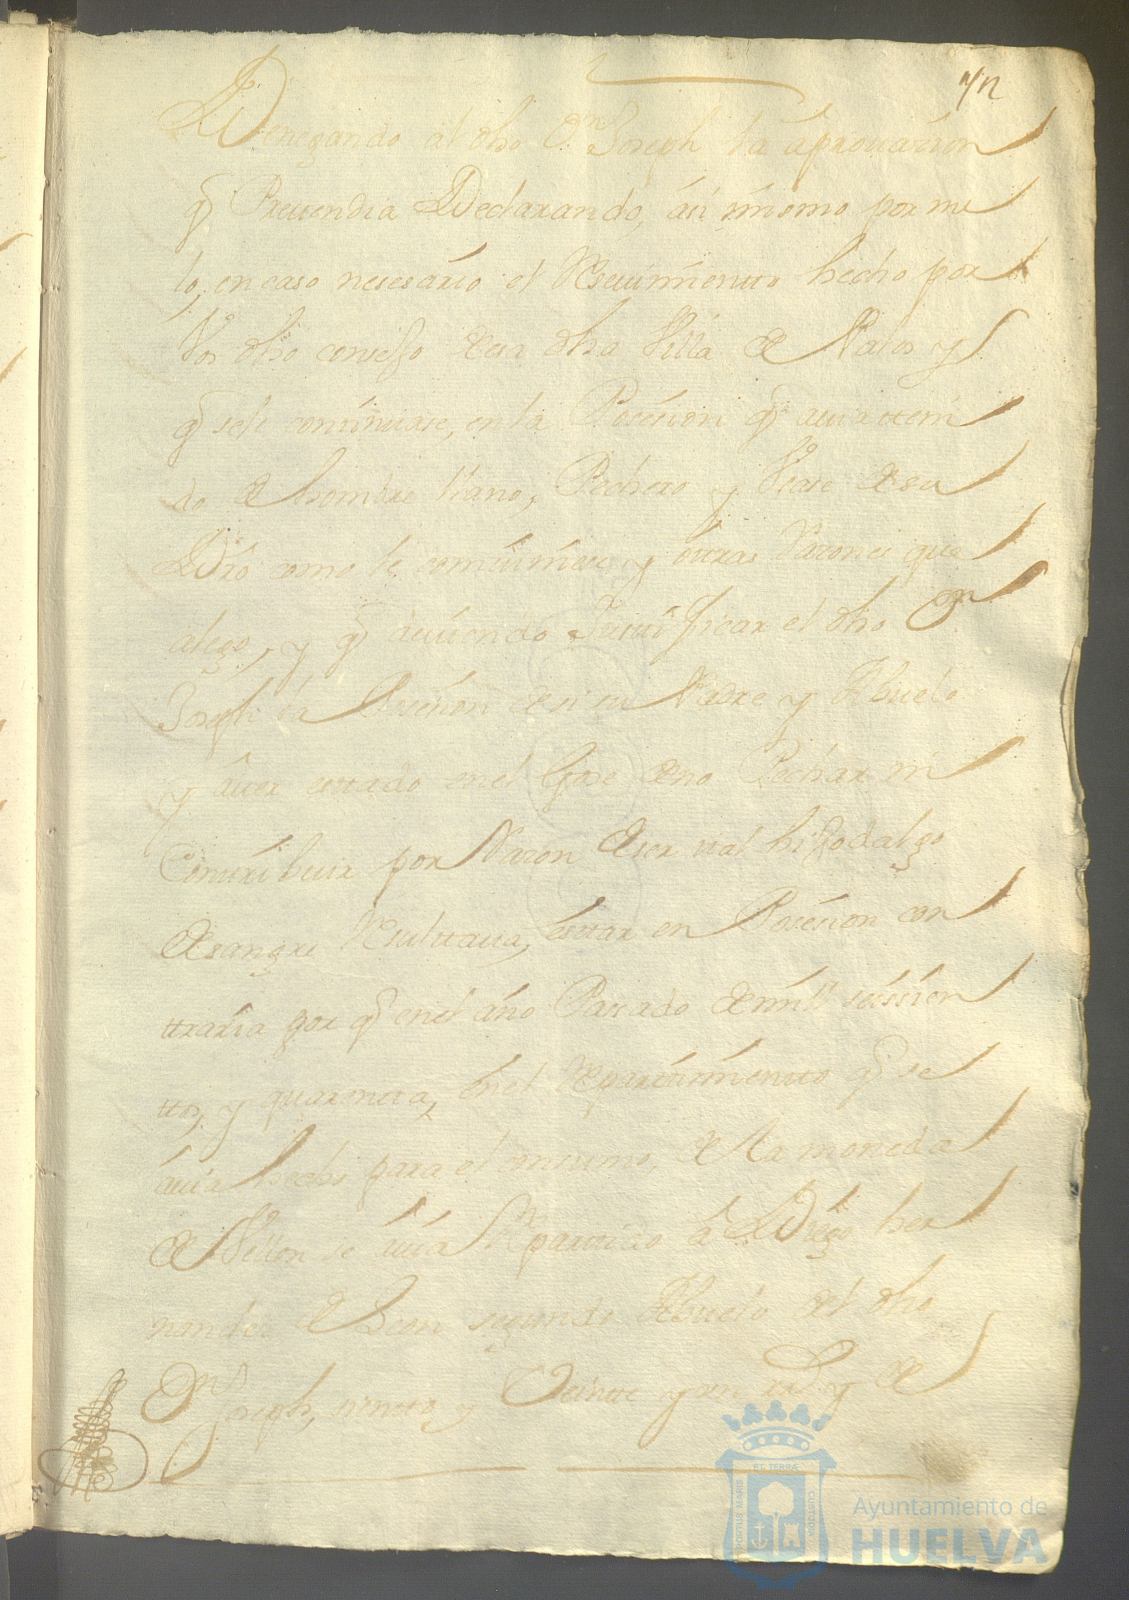 Denegando al dho Dn Joseph la aprouacion
q Pretendia Declarando, asi mismo por nu
lo, en caso nesesario el Reseuimiento hecho por
Vos dho consejo desa dha Villa de Palos y
q sele continuase, en la Posesion q auia teni
do de hombre llano, Pechero y Vsase de su
Dro como le combiniese y otras Razones que
alego, y q deuiendo Justificar el dho Dn
Joseph la Posesion de si su Padre y Abuelo
y auer estado en el Gose de no Pechar ni
Contribuir por Razon de ser tal hijodalgo
de sangre Resultaua, estar en Posesion con
traria por q en el año Pasado de mill seissien
tos, y quarenta, en el Repartimiento q se
auia hecho para el consumo, de la moneda
de Vellon se auia Repartido a Diego her
nandez de Beas segundo Abuelo del dho
Dn Joseph, siento y Veinte y un rs y de
Ayuntamiento de
HUELVA
PORTUS MARIS
ET TERRÆ
CUSTODIA